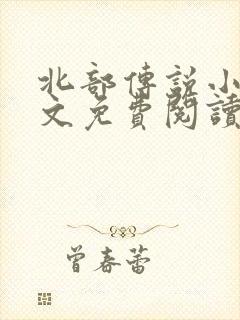 北部傳說小
文免費閱讀
曾春蕾